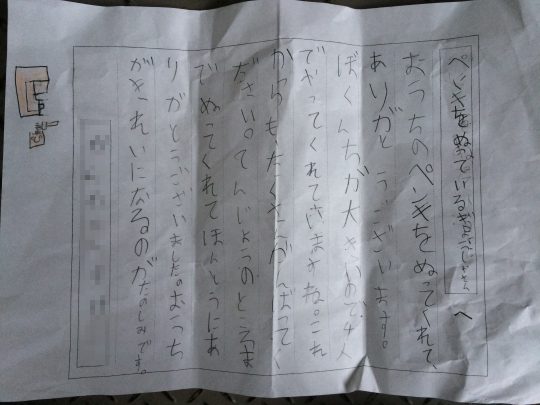 ペンキをぬっているおにいさん へ
おうちのペンキをぬってくれて、
ありがとうございます。
ぼくんちが大きいので4人
でやってくれていますね。これ
からも、たくさんがんばってく
ださい。てんじょうのところま
でぬってくれてほんとうにあ
りがとうございました。おうち
がきれいになるのがたのしみです。